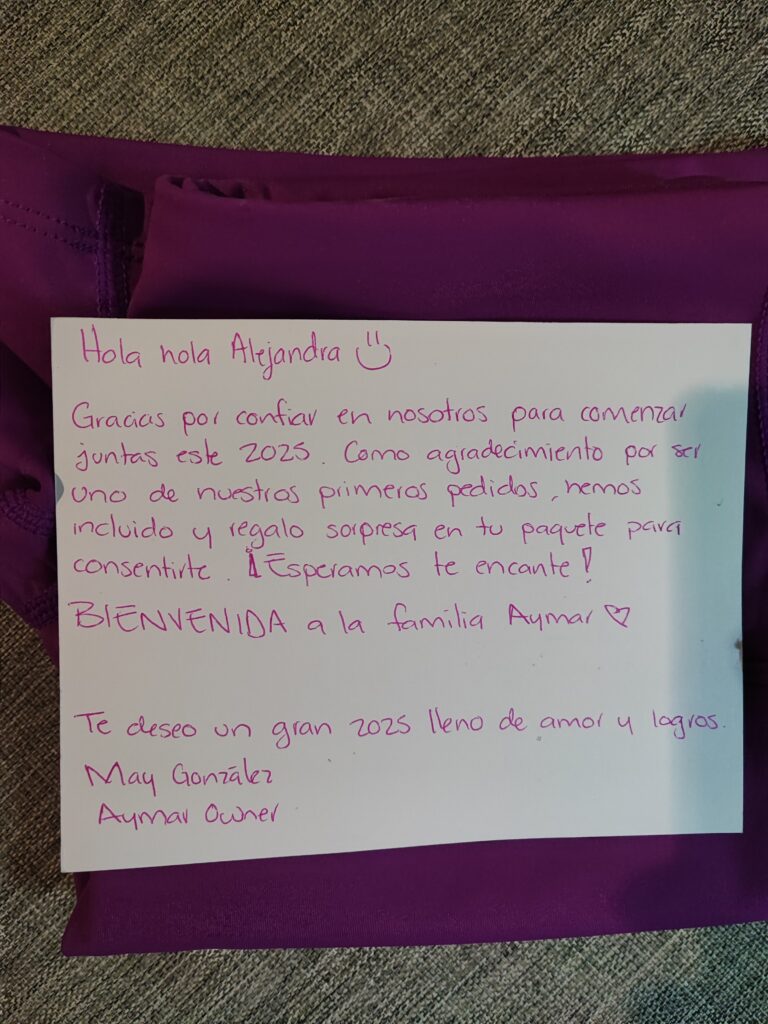 Hola hola Alejandra
Gracias por confiar en nosotros para comenzar
juntas este 2025. Como agradecimiento por ser
uno de nuestros primeros pedidos, hemos
incluido y regalo sorpresa en tu paquete para
consentirte. ¡Esperamos te encante!
BIENVENIDA a la familia Aymar ♡
Te deseo un gran 2025 lleno de amor y logros.
May González
Aymar Owner